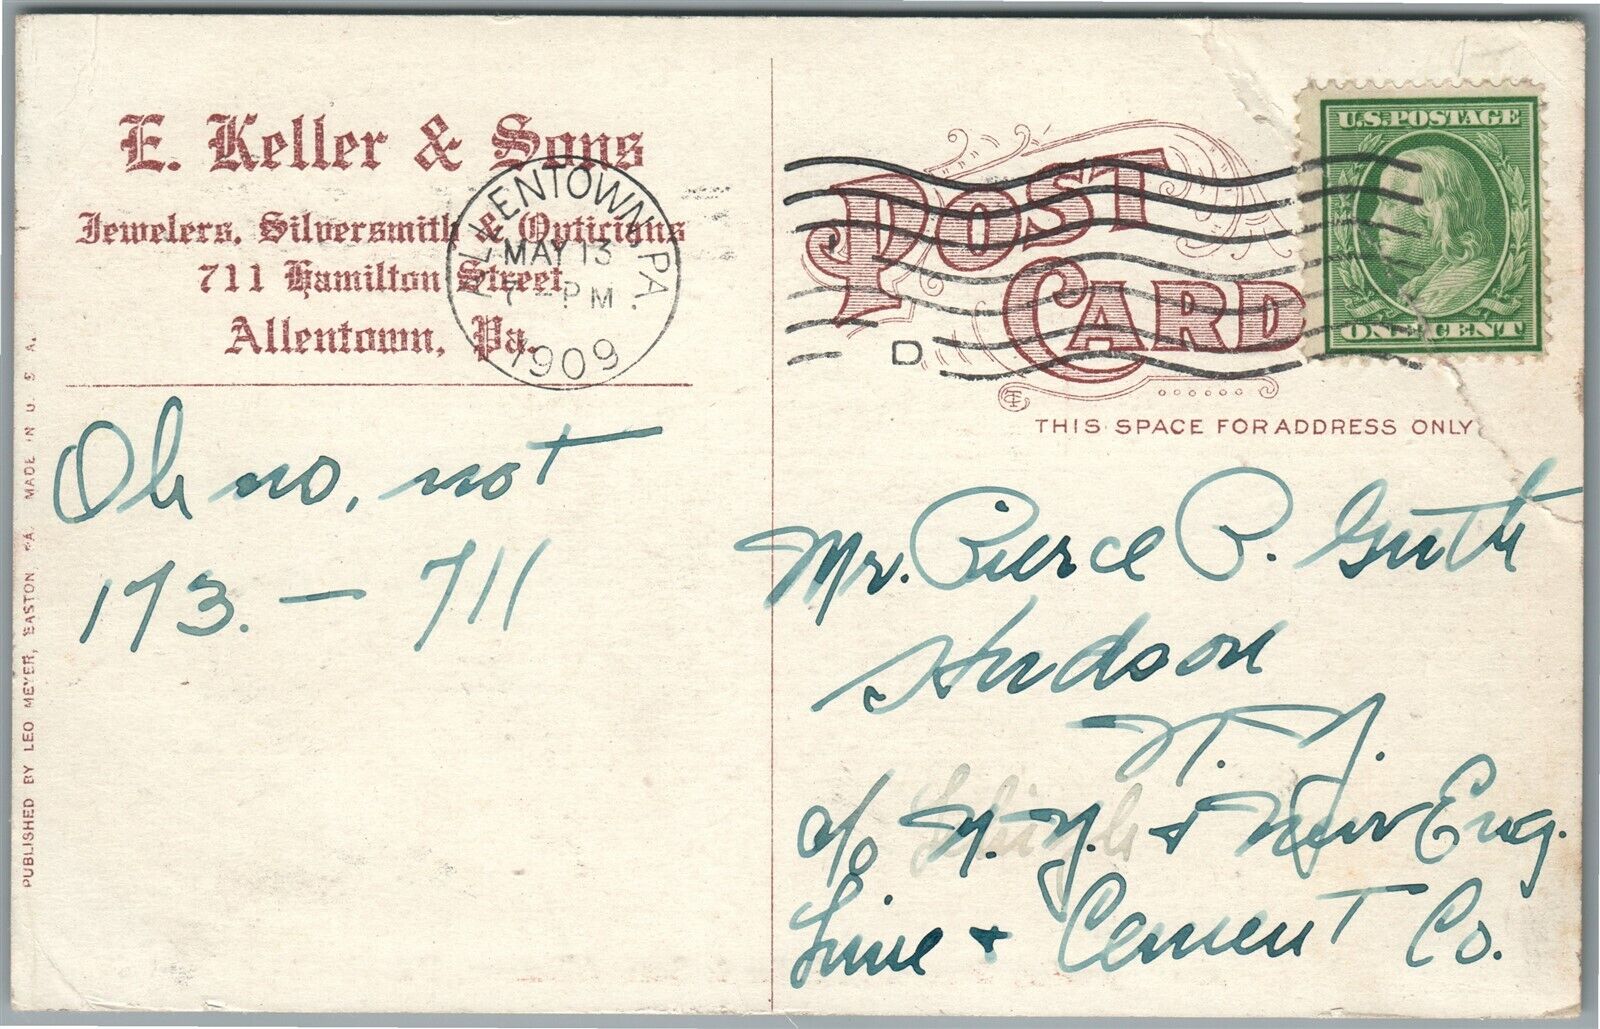 E. Keller & Sons
Jewelers, Silversmith & Opticians
711 Hamilton Street,
Allentown, Pa.
ALLENTOWN, PA.
MAY 13
7 - PM
1909
D
POST
CARD
U.S. POSTAGE
ONE CENT
THIS SPACE FOR ADDRESS ONLY
Oh no, not
173. — 711
Mr. Pierce P. Guth
Hudson
N. Y.
c/o N. Y. & New Eng.
Lime & Cement Co.
PUBLISHED BY LEO MEYER, EASTON PA. MADE IN U. S. A.